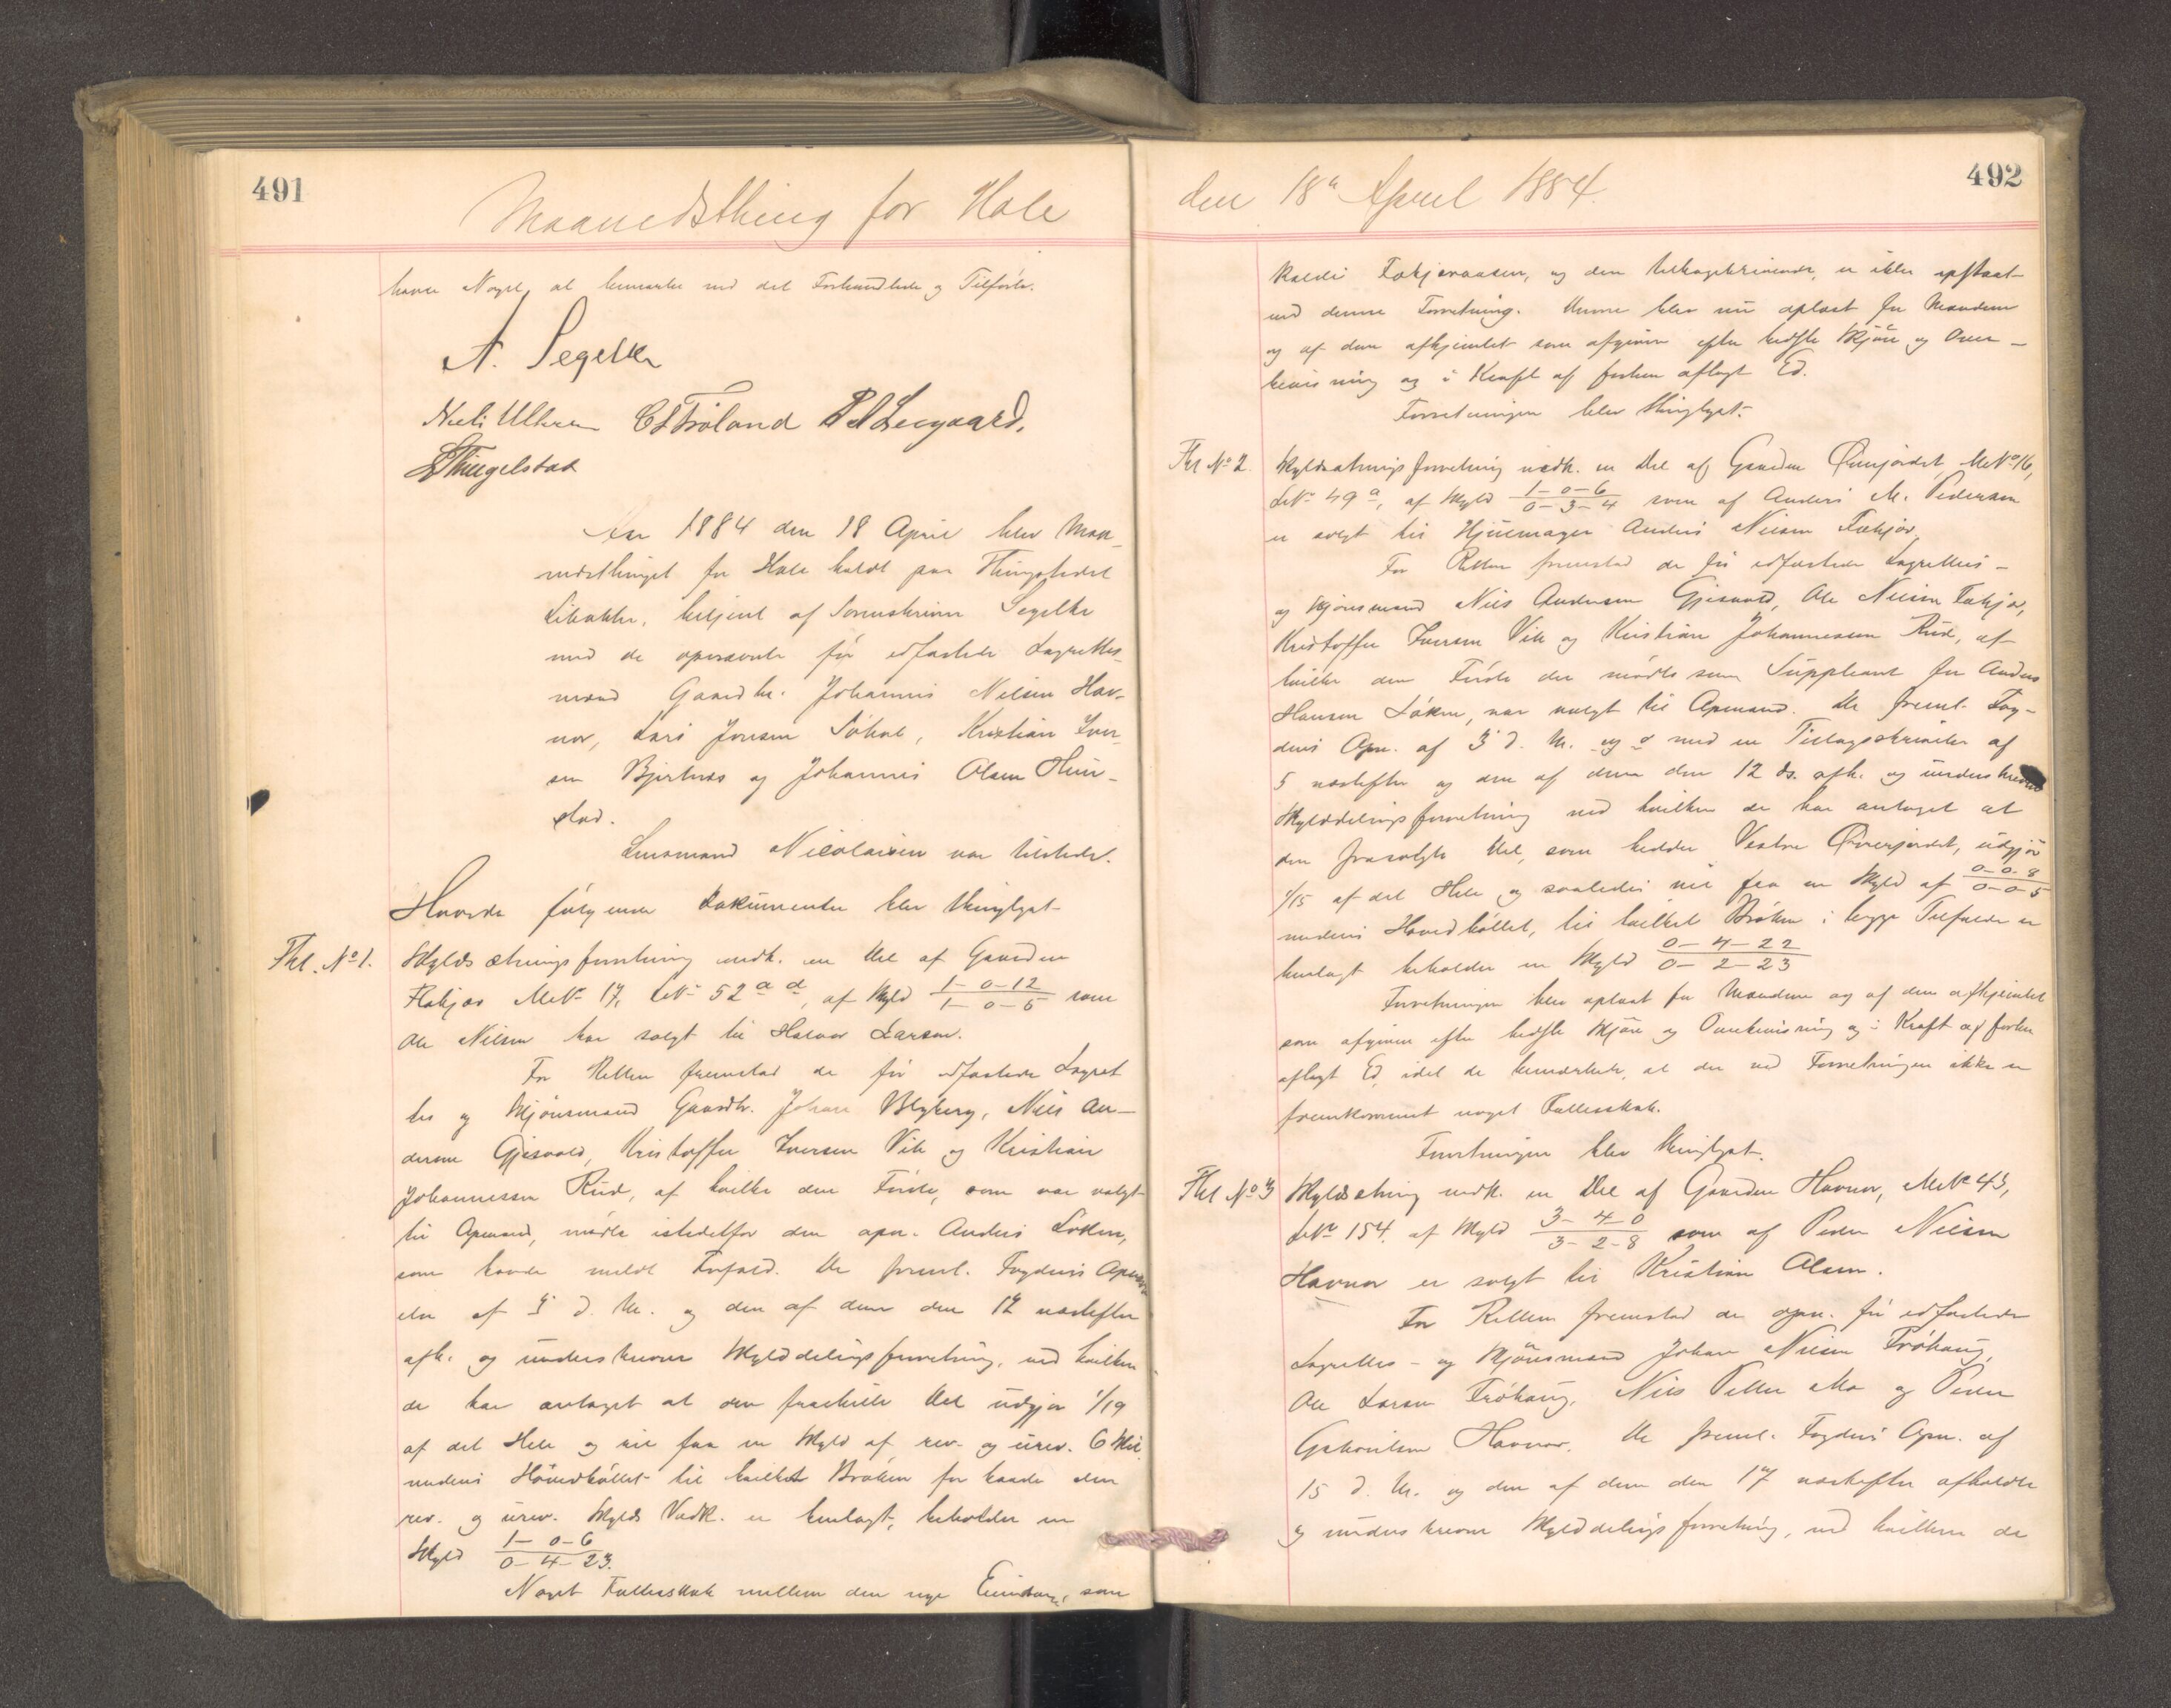 491
Maanedsthing for Hole
havde Noget at bemærke ved det Forhandlede og Tilførte.
A. Segelke
C F Fröland
Thingelstad
Aar 1884 den 18 April blev Maa-
nedsthinget for Hole holdt paa Thingstedet
betjent af Sorenskriver Segelke
med de opnævnte fir edfæstede Lagrettes-
mænd Gaardbr. Johannes Nielsen Hav-
nor, Lars Jonsen Kristian Iver-
sen Bjertnæs og Johannes Olsen Hun-
stad.
Lensmand Nicolaisen var tilstede.
Hvorda følgende Dokumenter blev thinglyst
Thl. No 1. Skyldsætningsforretning vedk. en Del af Gaarden
Fækjør MNo 17, LNo 52 a d, af Skyld 1-0-12 / 1-0-5 som
Ole Nilsen har solgt til Halvor Larsen.
For Retten fremstod de fir edfæstede Lagret-
tes og Skjønsmænd Gaardbr. Johan Blyberg, Nils An-
dersen Gjesvold, Kristoffer Iversen Vik og Kristian
Johannessen Rud, af hvilke den Første, som var valgt
til Opmand, mødte istedetfor den opn. Anders Løken,
som havde meldt Forfald. De freml. Fogdens Opnævn-
else af 3 d. M. og den af dem den 12 næstefter
afh. og underskrevne Skylddelingsforretning, ved hvilken
de har antaget at den fraskilte Del udgjør 1/19
af det Hele og vil faa en Skyld af rev. og urev. 6 Skil.
medens Hovedbøllet til hvilket Brøken for baade den
rev. og urev. Skylds Vedk. er henlagt, beholder en
Skyld 1-0-6 / 0-4-23.
Noget Fællesskab mellem den nye Eiendom, som
492
den 18de April 1884.
kaldes Fækjøraasen, og den tilbageblivende, er ikke opstaaet
ved denne Forretning. Denne blev nu oplæst for Mændene
og af dem afhjemlet som afgiven efter bedste Skjøn og Over-
bevisning og i Kraft af forhen aflagt Ed.
Forretningen blev thinglyst.
Thl No 2. Skyldsætningsforretning vedk. en Del af Gaarden Øverjordet, MNo 16,
LNo 49 a, af Skyld 1-0-6 / 0-3-4 som af Anders M. Pedersen
er solgt til Hjulmager Anders Nilsen Fækjør.
For Retten fremstod de fir edfæstede Lagrettes-
og Skjønsmænd Nils Andersen Gjesvold, Ole Nilsen Fækjør,
Kristoffer Iversen Vik og Kristian Johannessen Rud, af
hvilke den Første der mødte som Suppleant for Anders
Hansen Løken, var valgt til Opmand. De freml. Fog-
dens Opn. af 3 d. M. og med en Tillægsskrivelse af
5 næstefter og den af dem den 12 ds. afh. og underskrevne
Skylddelingsforretning ved hvilken de har antaget at
den frasolgte Del, som hedder Vestre Øverjordet, udgjør
1/15 af det Hele og saaledes vil faa en Skyld af 0-0-8 / 0-0-5
medens Hovedbøllet, til hvilket Brøken i begge Tilfælde er
henlagt beholder en Skyld 0-4-22 / 0-2-23
Forretningen blev oplæst for Mændene og af dem afhjemlet
som afgiven efter bedste Skjøn og Overbevisning og i Kraft af forhen
aflagt Ed, idet de bemærkede, at der ved Forretningen ikke er
fremkommet noget Fællesskab.
Forretningen blev thinglyst.
Thl No 3 Skyldsætning vedk. en Del af Gaarden Havnor, MNo 43,
LNo 154, af Skyld 3-4-0 / 3-2-8 som af Peder Nilsen
Havnor er solgt til Kristian Olsen.
For Retten fremstod de opn. fir edfæstede
Lagrettes- og Skjønsmænd Johan Nilsen Frøhaug,
Ole Larsen Frøhaug, Nils Petter Mo og Peder
Havnor. De freml. Fogdens Opn. af
15 d. M. og den af dem den 17 næstefter afholdte
og underskrevne Skylddelingsforretning, ved hvilken de